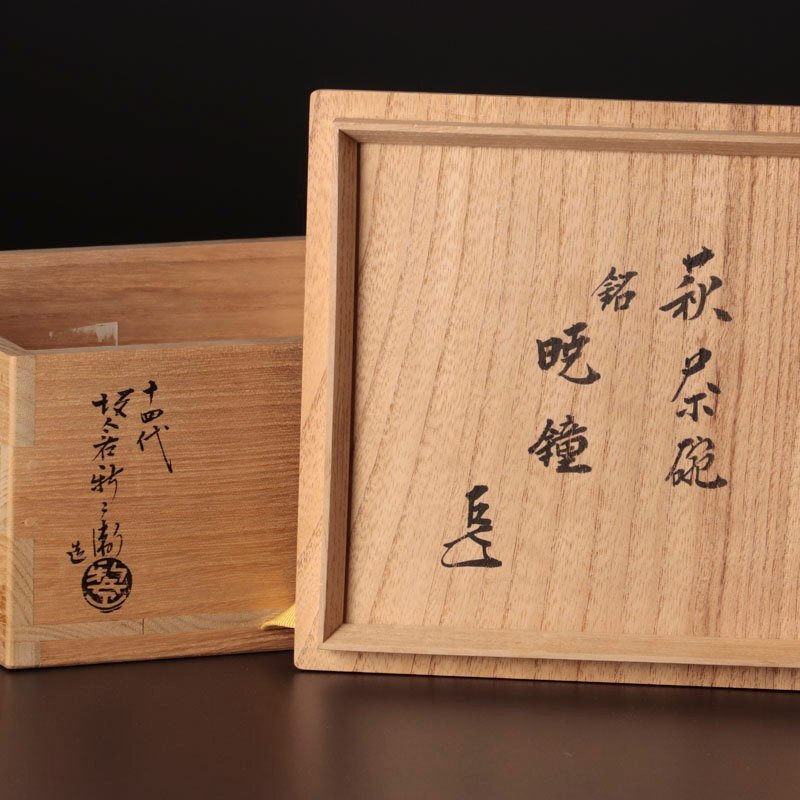 萩茶碗
銘
暁鐘
十四代
坂倉新兵衛
造